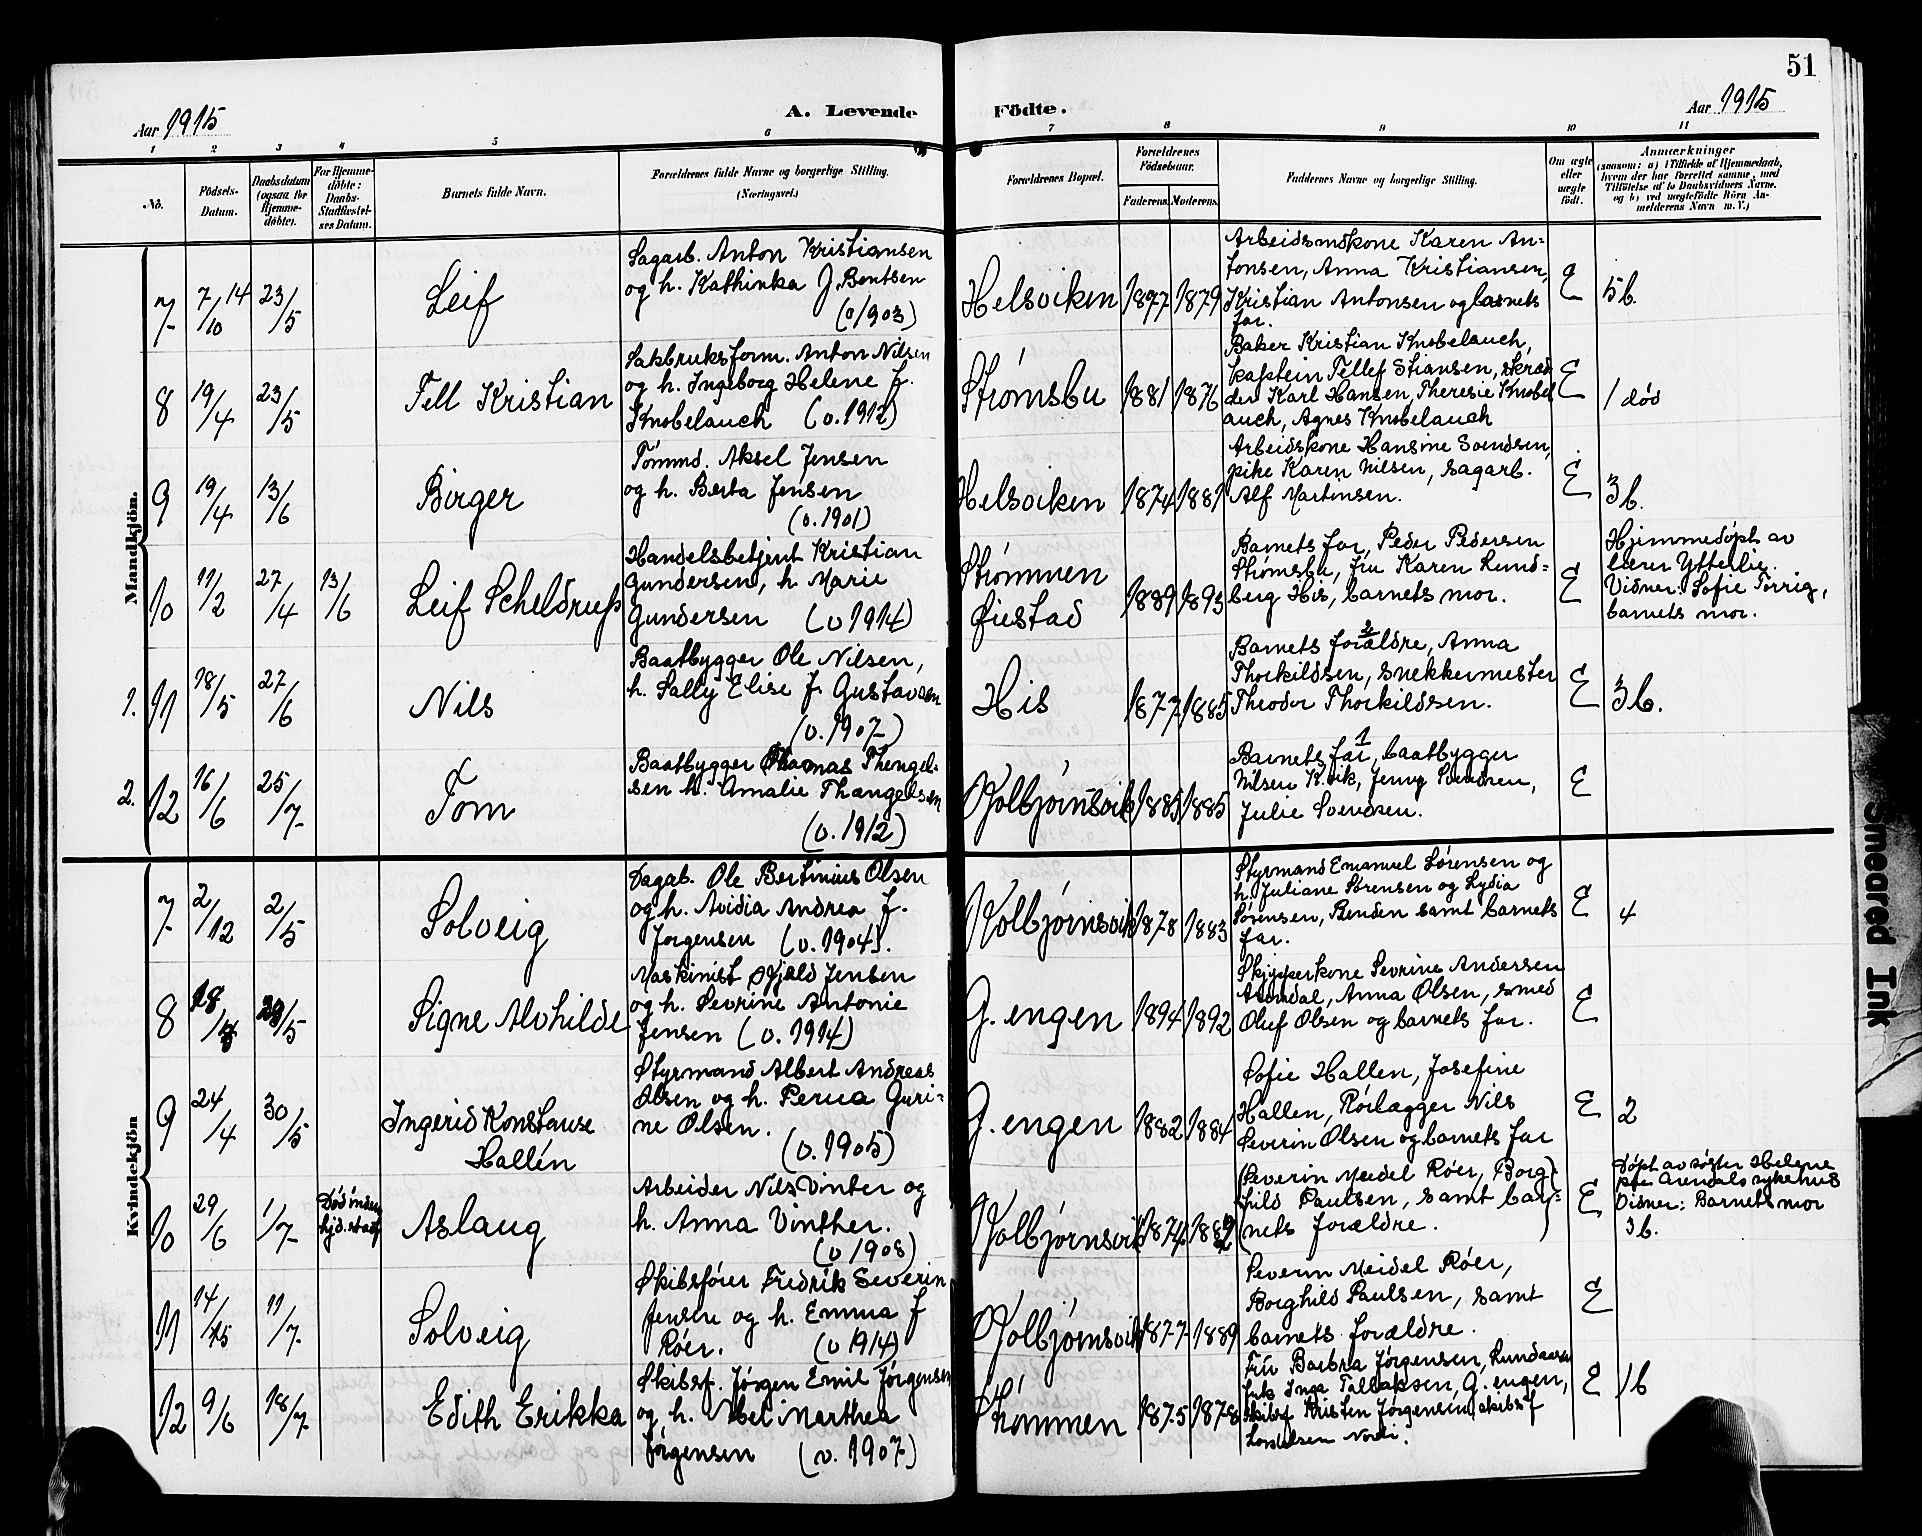 51
Aar 1915
A. Levende Födte.
Aar 1915
1 2 3 4 5 6 7 8 9 10 11
No.
Födsels-
Datum.
Daabsdatum
(ogsaa for
Hjemme-
døbte).
For Hjemme-
døbte:
Daabs-
Stadfæstel-
ses Datum.
Barnets fulde Navn.
Forældrenes fulde Navne og borgerlige Stilling.
(Næringsvei.)
Forældrenes Bopæl.
Forældrenes
Fødselsaar.
Faderens. Moderens.
Faddernes Navne og borgerlige Stilling.
Om ægte
eller
uægte
født.
Anmærkninger
(saasom: a) i Tilfælde af Hjemmedaab,
hvem der har forrettet samme, med
Tilføielse af to Daabsvidners Navne,
og b) ved uægtefødte Börn An-
melderens Navn m. V.)
Mandkjön.
7 7/10 14 23/5 Leif
Sagarb. Anton Kristiansen
og h. Kathinka J. Bentsen
(v/903)
Helsviken 1877 1879
Arbeidsmdkone Karen An-
tonsen, Anna Kristiansen,
Kristian Antonsen og barnets
far.
E 5 b.
8 19/4 23/5 Tell Kristian
Sakbruksform. Anton Nilsen
og h. Ingeborg Helene f.
Knobelauch (v.1912)
Strømsbu 1881 1876
Baker Kristian Knobelauch,
kaptein Tellef Stiansen, skræd
der Karl Hansen, Theresie Knobel
auch, Agnes Knobelauch
E 1 død
9 19/4 13/6 Birger
Tømmd. Aksel Jensen
og h. Berta Jensen
(v.1901)
Helsviken 1874 1881
Arbeidskone Hansine Svendsen,
pike Karen Nilsen, sagarb.
Alf Martinsen.
E 3 b.
10 11/2 27/4 13/6 Leif Scheldrup
Handelsbetjent Kristian
Gundersen, h. Marie
Gundersen (v 1914)
Strømmen
Øiestad
1889 1893
Barnets far, Peder Pedersen
Strømsbu, fru Karen Lund-
berg His, barnets mor.
E
Hjemmedøpt av
lærer Ytterlie.
Vidner: Sofie Torrig,
barnets mor.
1. 11 18/5 27/6 Nils
Baatbygger Ole Nilsen,
h. Sally Elise f. Gustavsen
(v.1907)
His 1877 1885
2
Barnets forældre, Anna
Thorkildsen, snekkermester
Theodor Thorkildsen.
E 3 b.
2. 12 16/6 25/7 Tom
Baatbygger Thomas Thengel-
sen h. Amalie Thangelsen
(v.1912)
Kolbjørnsvik 1885 1885
1
Barnets far, baatbygger
Nilsen Kvik, Jenny Svendsen,
Julie Svendsen.
E
Kvindekjön
7 2/12 2/5 Solveig
Dagab. Ole Bertinius Olsen
og h. Avidia Andrea f.
Jørgensen (v.1904).
Kolbjørnsvik 1878 1883
Styrmand Emanuel Sørensen og
h. Juliane Sørensen og Lydia
Sørensen, Renden samt barnets
far.
E 4
8 18/4 /5 Signe Alvhilde
Maskinist Jensen
og h. Sevrine Antonie
Jensen (v.1914)
G. engen 1894 1892
Skipperkone Sevrine Andersen
Arendal, Anna Olsen, smed
Oluf Olsen og barnets far.
E
9 24/4 30/5 Ingerid Konstanse
Hallén
Styrmand Albert Andreas
Olsen og h. Perua Guri-
ne Olsen.
(v.1905)
G. engen 1882 1884
Sofie Hallen, Josefine
Hallen, Rørlægger Nils
Severin Olsen og barnets far
E 2
10 29/6 1/7 Død inden
kjd. stadf Aslaug
Arbeider Nils Vinter og
h. Anna Vinther.
(v 1908)
Kolbjørnsvik 1874 1882
(Severin Meidel Røer, Borg-
hild Paulsen, samt bar-
nets forældre.)
E
Døpt av søster Helene
paa Arendals sykehus
Vidner: Barnets mor
3 b.
11 14/45 11/7 Solveig
Skibsfører Fredrik Severin
Jensen og h. Emma f
Røer. (v 1914)
Kolbjørnsvik 1877 1889
Severin Meidel Røer,
Borghild Paulsen, samt
barnets forældre.
E
12 9/6 18/7 Edith Erikka
Skibsf. Jørgen Emil Jørgensen
og h. Abel Marthea
Jørgensen (v. 1907)
Strømmen 1875 1878
Fru Barbra Jørgensen, Lundaasen
frk Inga Tallaksen, G. engen,
skibsf Kristen Jørgensen, skibsf
E 1 b
Smeared Ink